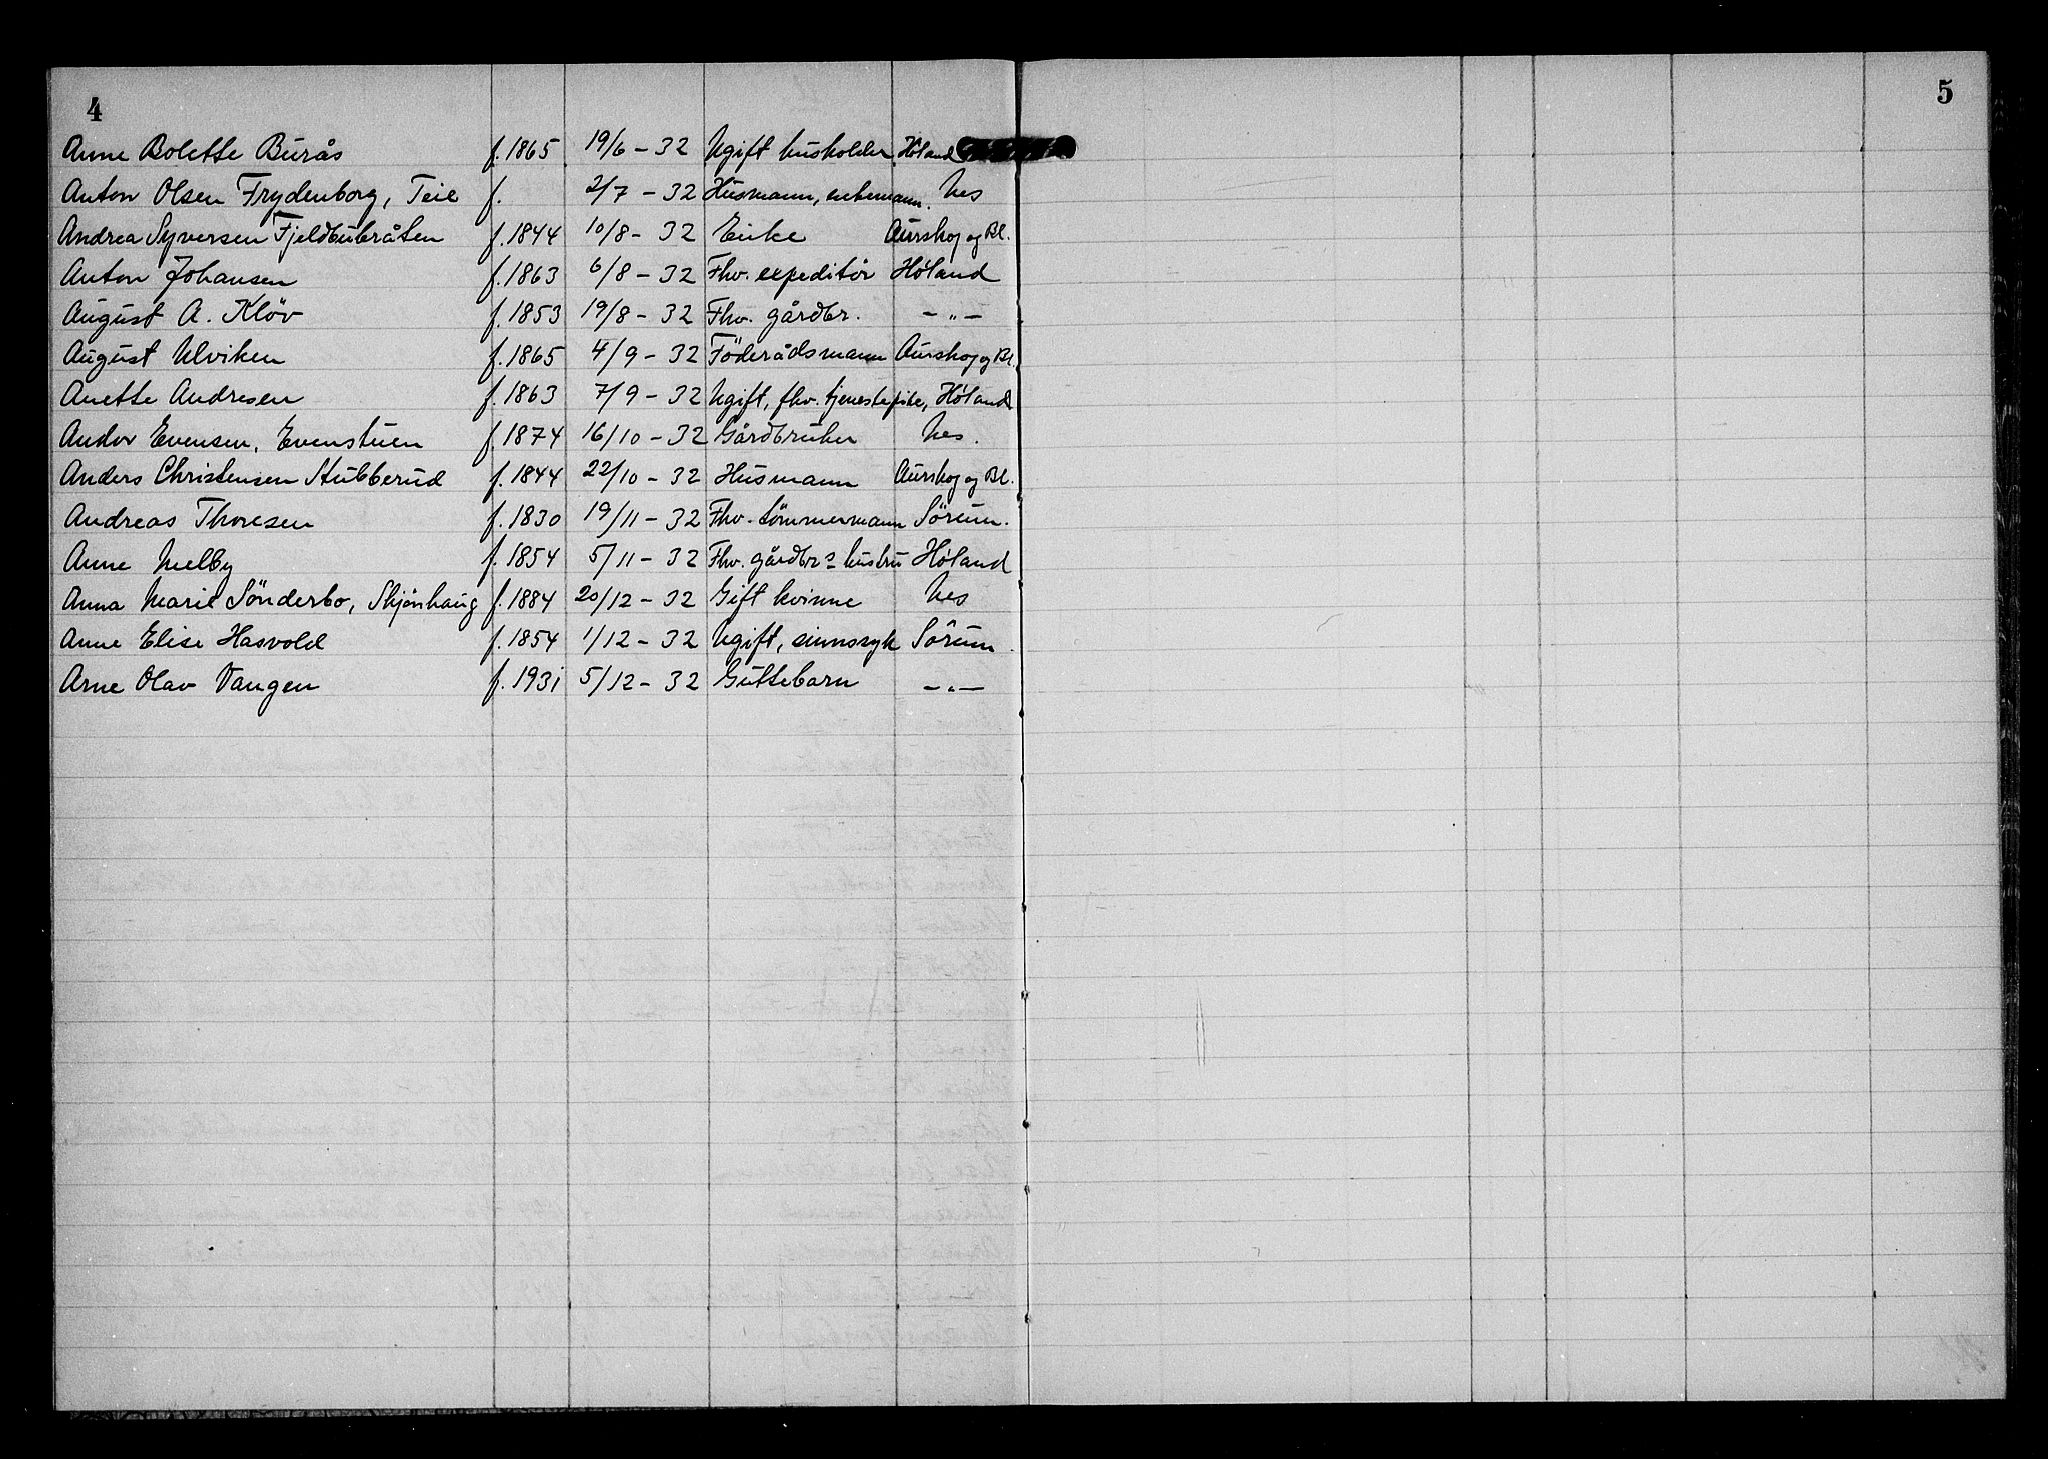 4
5
Anne Bolette Burås f. 1865 19/6 - 32 Ugift husholder, Höland
Anton Olsen Frydenborg, Teie f. 2/7 - 32 Husmann, enkemann. Nes
Andrea Syversen Fjeldbubråten f. 1844 10/8 - 32 Enke Aurskog og Bl.
Anton Johansen f. 1863 6/8 - 32 Fhv. expeditör Höland
August A. Klöv f. 1853 19/8 - 32 Fhv. gårdbr. - " -
August Ulviken f. 1865 4/9 - 32 Föderådsmann Aurskog og Bl.
Anette Andresen f. 1863 7/9 - 32 Ugift, fhv. tjenestepike, Höland
Andor Evensen, Evenstuen f. 1874 16/10 - 32 Gårdbruker Nes.
Anders Christensen Stubberud f. 1844 22/10 - 32 Husmann Aurskog og Bl.
Andreas Thoresen f. 1830 19/11 - 32 Fhv. tömmermann Sörum.
Anne Melby f. 1854 5/11 - 32 Fhv. gårdbr.s hustru Höland
Anna Marie Sönderbo, Skjönhaug f. 1884 20/12 - 32 Gift kvinne Nes
Anne Elise Hasvold f. 1854 1/12 - 32 Ugift, sinnssyk Sörum
Arne Olav Vangen f. 1931 5/12 - 32 Guttebarn - " -